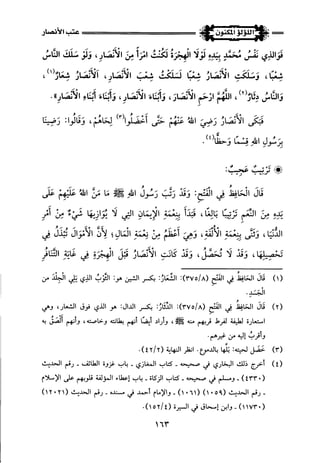 اللؤلؤ المكنون
عتب الأنصار
فَوَالذِي نَفْسُ مُحَمَّدٍ بِيَدِهِ لَوْلَا الْهِجْرَةُ لَكُنْتُ امْرَأً مِنَ الْأَنْصَارِ، وَلَوْ سَلَكَ النَّاسُ
شِعْبًا، وَسَلَكَتِ الْأَنْصَارُ شِعْبًا لَسَلَكْتُ شِعْبَ الْأَنْصَارِ، الْأَنْصَارُ شِعَارٌ(١)،
وَالنَّاسُ دِثَارٌ(٢)، اللَّهُمَّ ارْحَمِ الْأَنْصَارَ، وَأَبْنَاءَ الْأَنْصَارِ، وَأَبْنَاءَ أَبْنَاءِ الْأَنْصَارِ».
فَبَكَى الْأَنْصَارُ رَضِيَ اللهُ عَنْهُمْ حَتَّى أَخْضَلُوا(٣) لِحَاهُمْ، وَقَالُوا: رَضِينَا
بِرَسُولِ اللهِ قِسْمًا وَحَظًّا(٤).
* تَرْتِيبٌ عَجِيبٌ:
قَالَ الْحَافِظُ فِي الْفَتْحِ: وَقَدْ رَتَّبَ رَسُولُ اللهِ ﷺ مَا مَنَّ اللهُ عَلَيْهِمْ عَلَى
يَدِهِ مِنَ النِّعَمِ تَرْتِيبًا بَالِغًا، فَبَدَأَ بِنِعْمَةِ الْإِيمَانِ الَّتِي لَا يُوَازِيهَا شَيْءٌ مِنْ أَمْرِ
الدُّنْيَا، وَثَنَّى بِنِعْمَةِ الْأُلْفَةِ، وَهِيَ أَعْظَمُ مِنْ نِعْمَةِ الْمَالِ؛ لِأَنَّ الْأَمْوَالَ تُبْذَلُ فِي
تَحْصِيلِهَا، وَقَدْ لَا تُحَصَّلُ، وَقَدْ كَانَتِ الْأَنْصَارُ قَبْلَ الْهِجْرَةِ فِي غَايَةِ التَّنَافُرِ
(١) قَالَ الحَافِظُ فِي الفَتْحِ (٣٧٥/٨): الشِّعَارُ: بكسر الشين هو: الثَّوْبُ الذي يلي الجِلْدَ من
الجَسَدِ.
(٢) قَالَ الحَافِظُ فِي الفَتْحِ (٣٧٥/٨): الدِّثَارُ: بكسر الدال: هو الذي فوق الشعار، وهي
استعارة لطيفة لفرط قربهم منه ﷺ، وأراد أيضًا أنهم بطانته وخاصته، وأنهم ألصق به
وأقرب إليه من غيرهم.
(٣) خَضِلَ لحيته: بَلَّها بالدموع. انظر النهاية (٤٢/٢).
(٤) أخرج ذلك البخاري في صحيحه - كتاب المغازي - باب غزوة الطائف - رقم الحديث
(٤٣٣٠) - ومسلم في صحيحه - كتاب الزكاة - باب إعطاء المؤلفة قلوبهم على الإسلام
- رقم الحديث (١٠٥٩) (١٠٦١) - والإمام أحمد في مسنده - رقم الحديث (١٢٠٢١)
(١١٧٣٠) - وابن إسحاق في السيرة (١٥٢/٤).
١٦٣